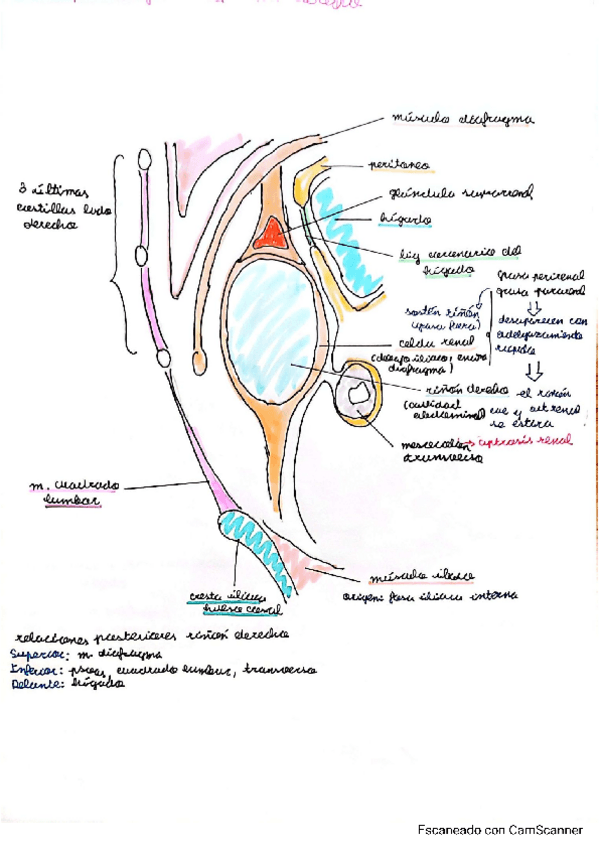 músculo diafragma
peritoneo
glándula suprarrenal
hígado
lig coronario del
hígado
3 últimas
costillas lado
derecho
grasa perirrenal
grasa pararrenal
sostén riñón
(grasa fuera)
desaparecen con
adelgazamiento
rápido
celda renal
diafragma)
riñón derecho
(cavidad
abdominal)
el riñón
cae y
se estira
→ uptosis renal
mesocolon
transverso
m. cuadrado
lumbar
cresta ilíaca
hueso coxal
músculo ilíaco
origen: fosa ilíaca interna
relaciones posteriores riñón derecho
Superior: m. diafragma
Inferior: psoas, cuadrado lumbar, transverso
Delante: hígado
Escaneado con CamScanner